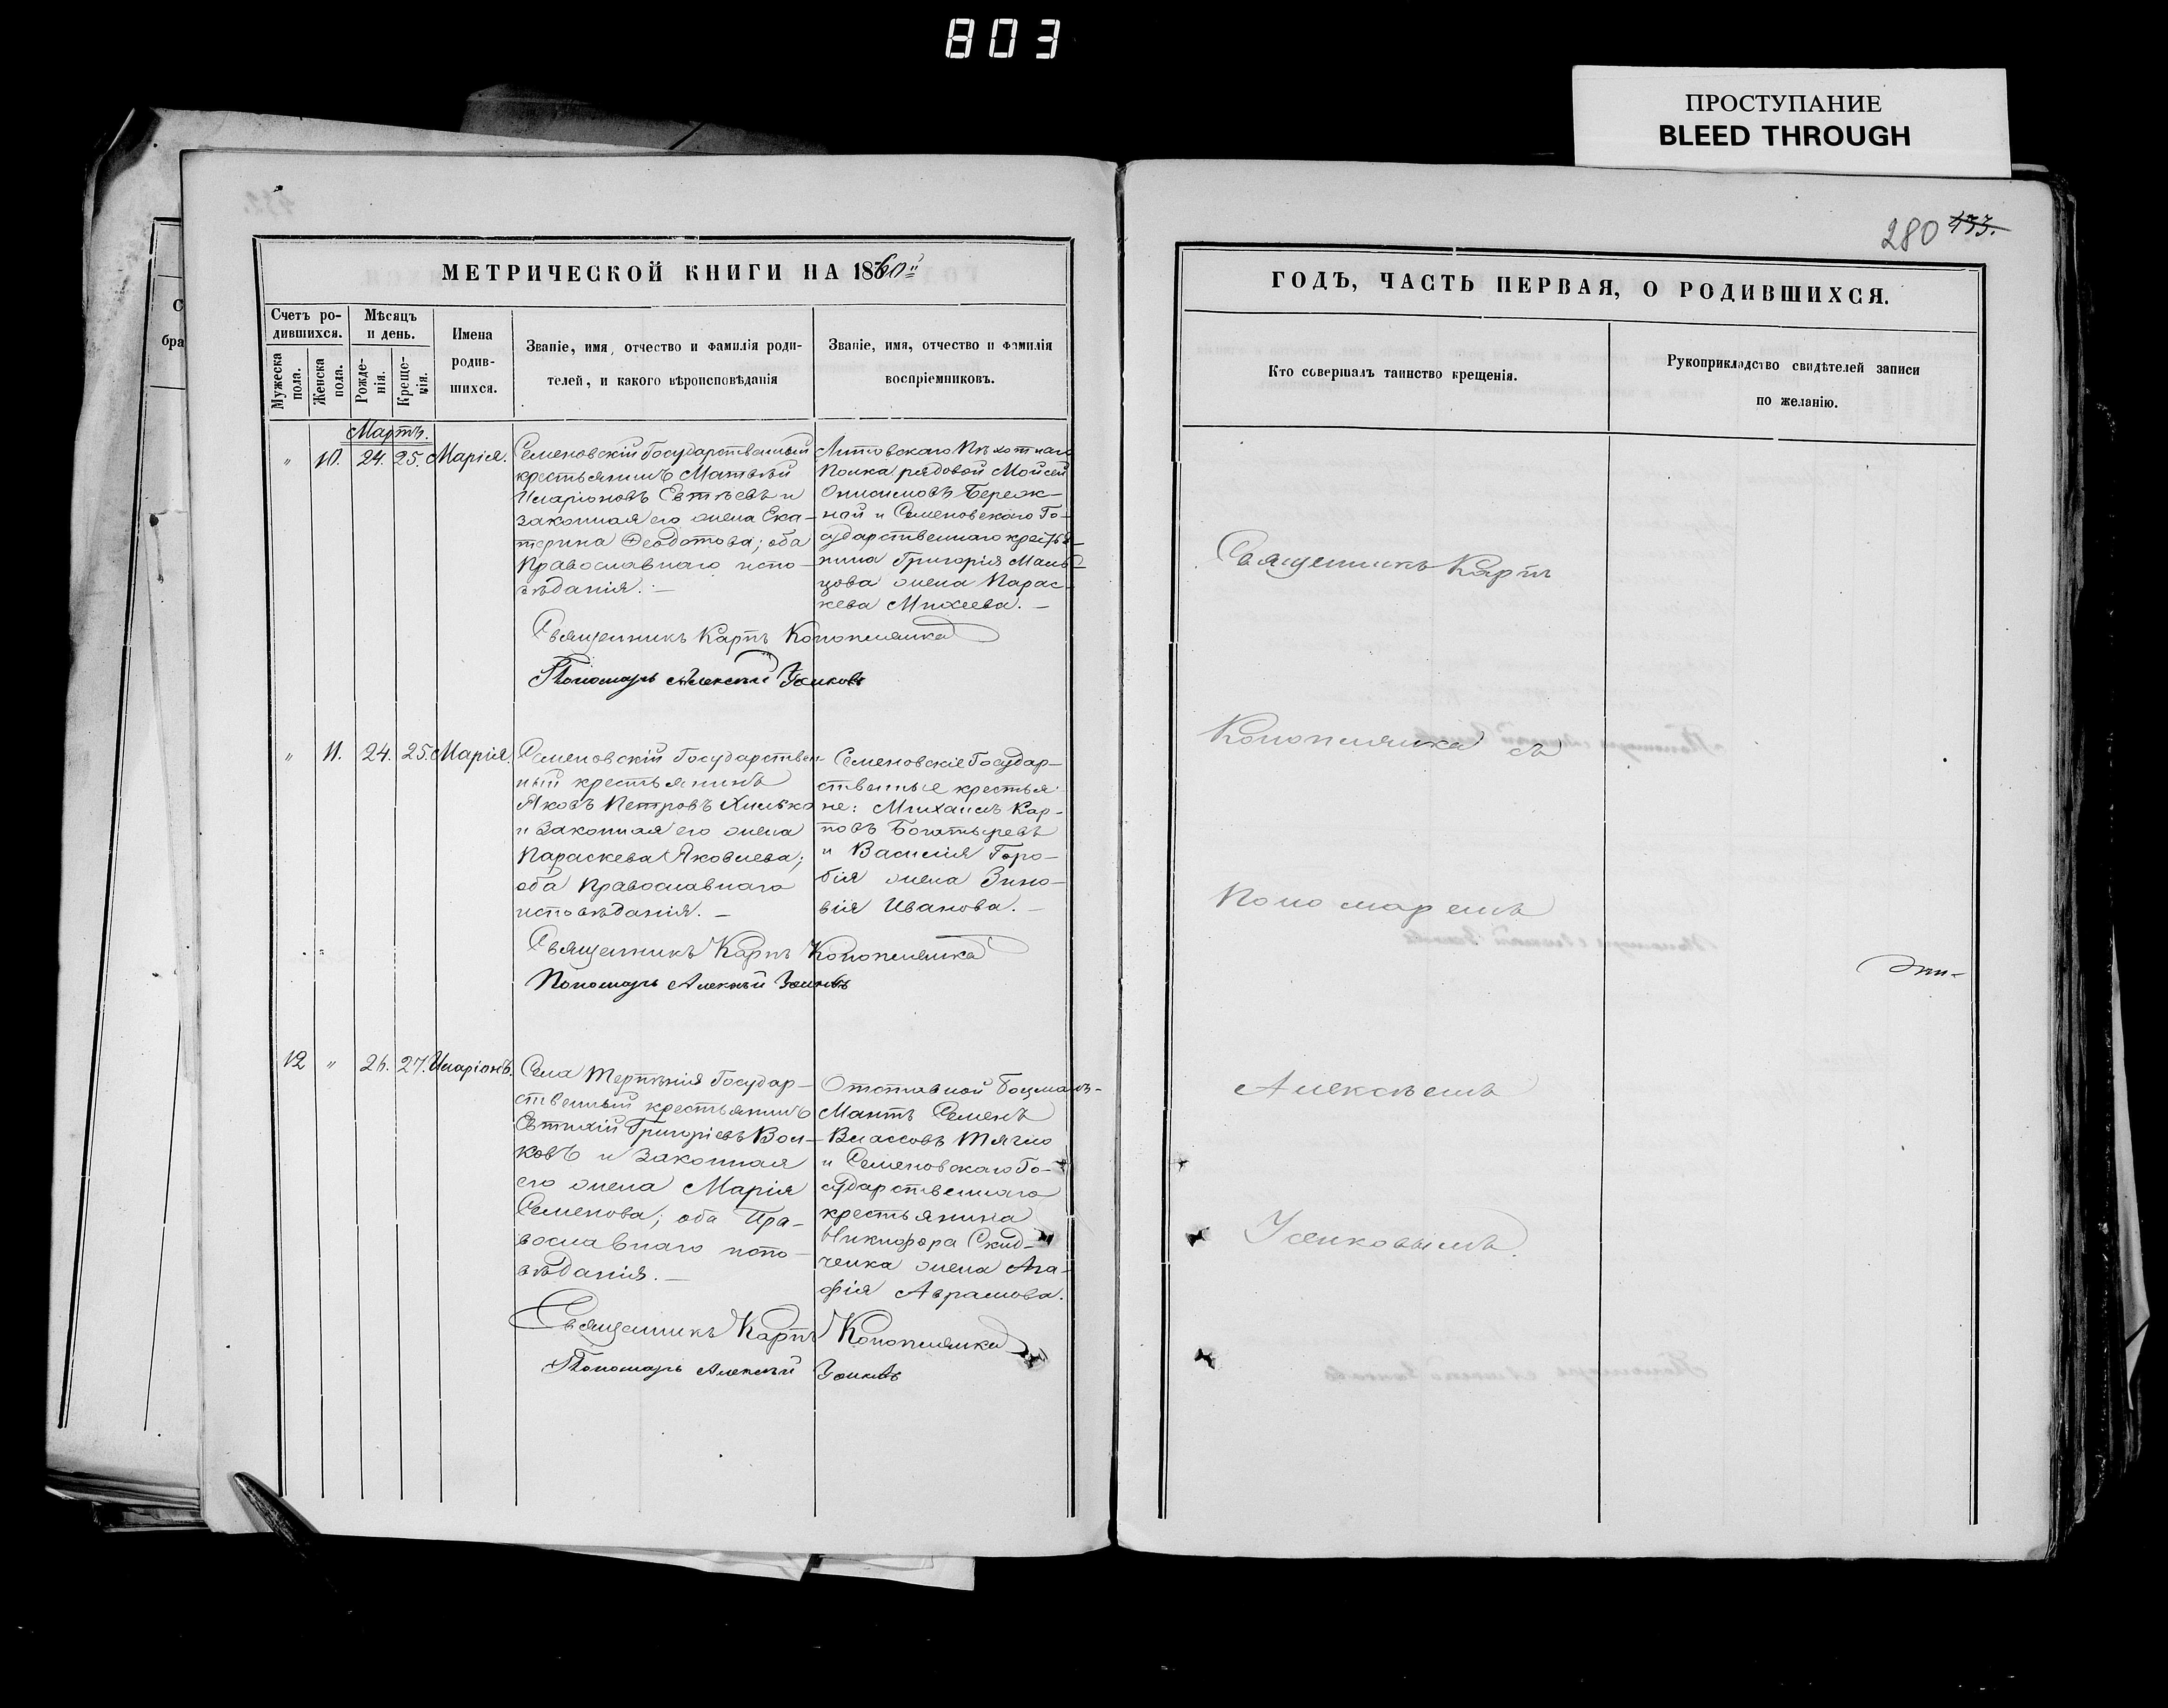 803
ПРОСТУПАНИЕ
BLEED THROUGH
280 433.
МЕТРИЧЕСКОЙ КНИГИ НА 1860й
ГОДЪ, ЧАСТЬ ПЕРВАЯ, О РОДИВШИХСЯ.
Счетъ ро-
дившихся.
Мужеска пола.
Женска пола.
Мѣсяцъ
и день.
Рожде-
нія.
Креще-
нія.
Имена
родив-
шихся.
Званіе, имя, отчество и фамилія роди-
телей, и какого вѣроисповѣданія
Званіе, имя, отчество и фамилія
воспріемниковъ.
Кто совершалъ таинство крещенія.
Рукоприкладство свидѣтелей записи
по желанію.
Мартъ.
" 10. 24. 25. Марія.
Семеновскій Государственный
крестьянинъ Матвѣй
Иларіоновъ Евтѣевъ и
законная его жена Ека-
терина Ѳеодотова; оба
Православнаго испо-
вѣданія. —
Литовскаго Пѣхотнаго
Полка рядовой Мойсей
Онисимовъ Береж-
ной и Семеновскаго Го-
сударственнаго крестья-
нина Григорія Маль-
цова жена Парас-
кева Михеева. —
Священникъ Карпъ Коноплянка
Пономарь Алексѣй Усиковъ
" 11. 24. 25. Марія.
Семеновскій Государствен-
ный крестьянинъ
Яковъ Петровъ Хилько
и законная его жена
Параскева Яковлева;
оба Православнаго
исповѣданія. —
Семеновскіе Государ-
ственные крестья-
не: Михаилъ Кар-
повъ Богатыревъ
и Василія Горо-
бія жена Зино-
вія Иванова. —
Священникъ Карпъ Коноплянка
Пономарь Алексѣй Усиковъ
12 " 26. 27. Иларіонъ.
Села Терпѣнія Государ-
ственный крестьянинъ
Евтихій Григоріевъ Вол-
ковъ и законная
его жена Марія
Семенова; оба Пра-
вославнаго испо-
вѣданія. —
Отставной Боцманъ-
Матъ Семенъ
Власовъ Тягло
и Семеновскаго Го-
сударственнаго
крестьянина
Никифора Скид-
ченка жена Ага-
фія Аврамова.
Священникъ Карпъ Коноплянка
Пономарь Алексѣй Усиковъ
Священникъ Карпъ
Коноплянка съ
Пономаремъ
Алексѣемъ
Усиковымъ.